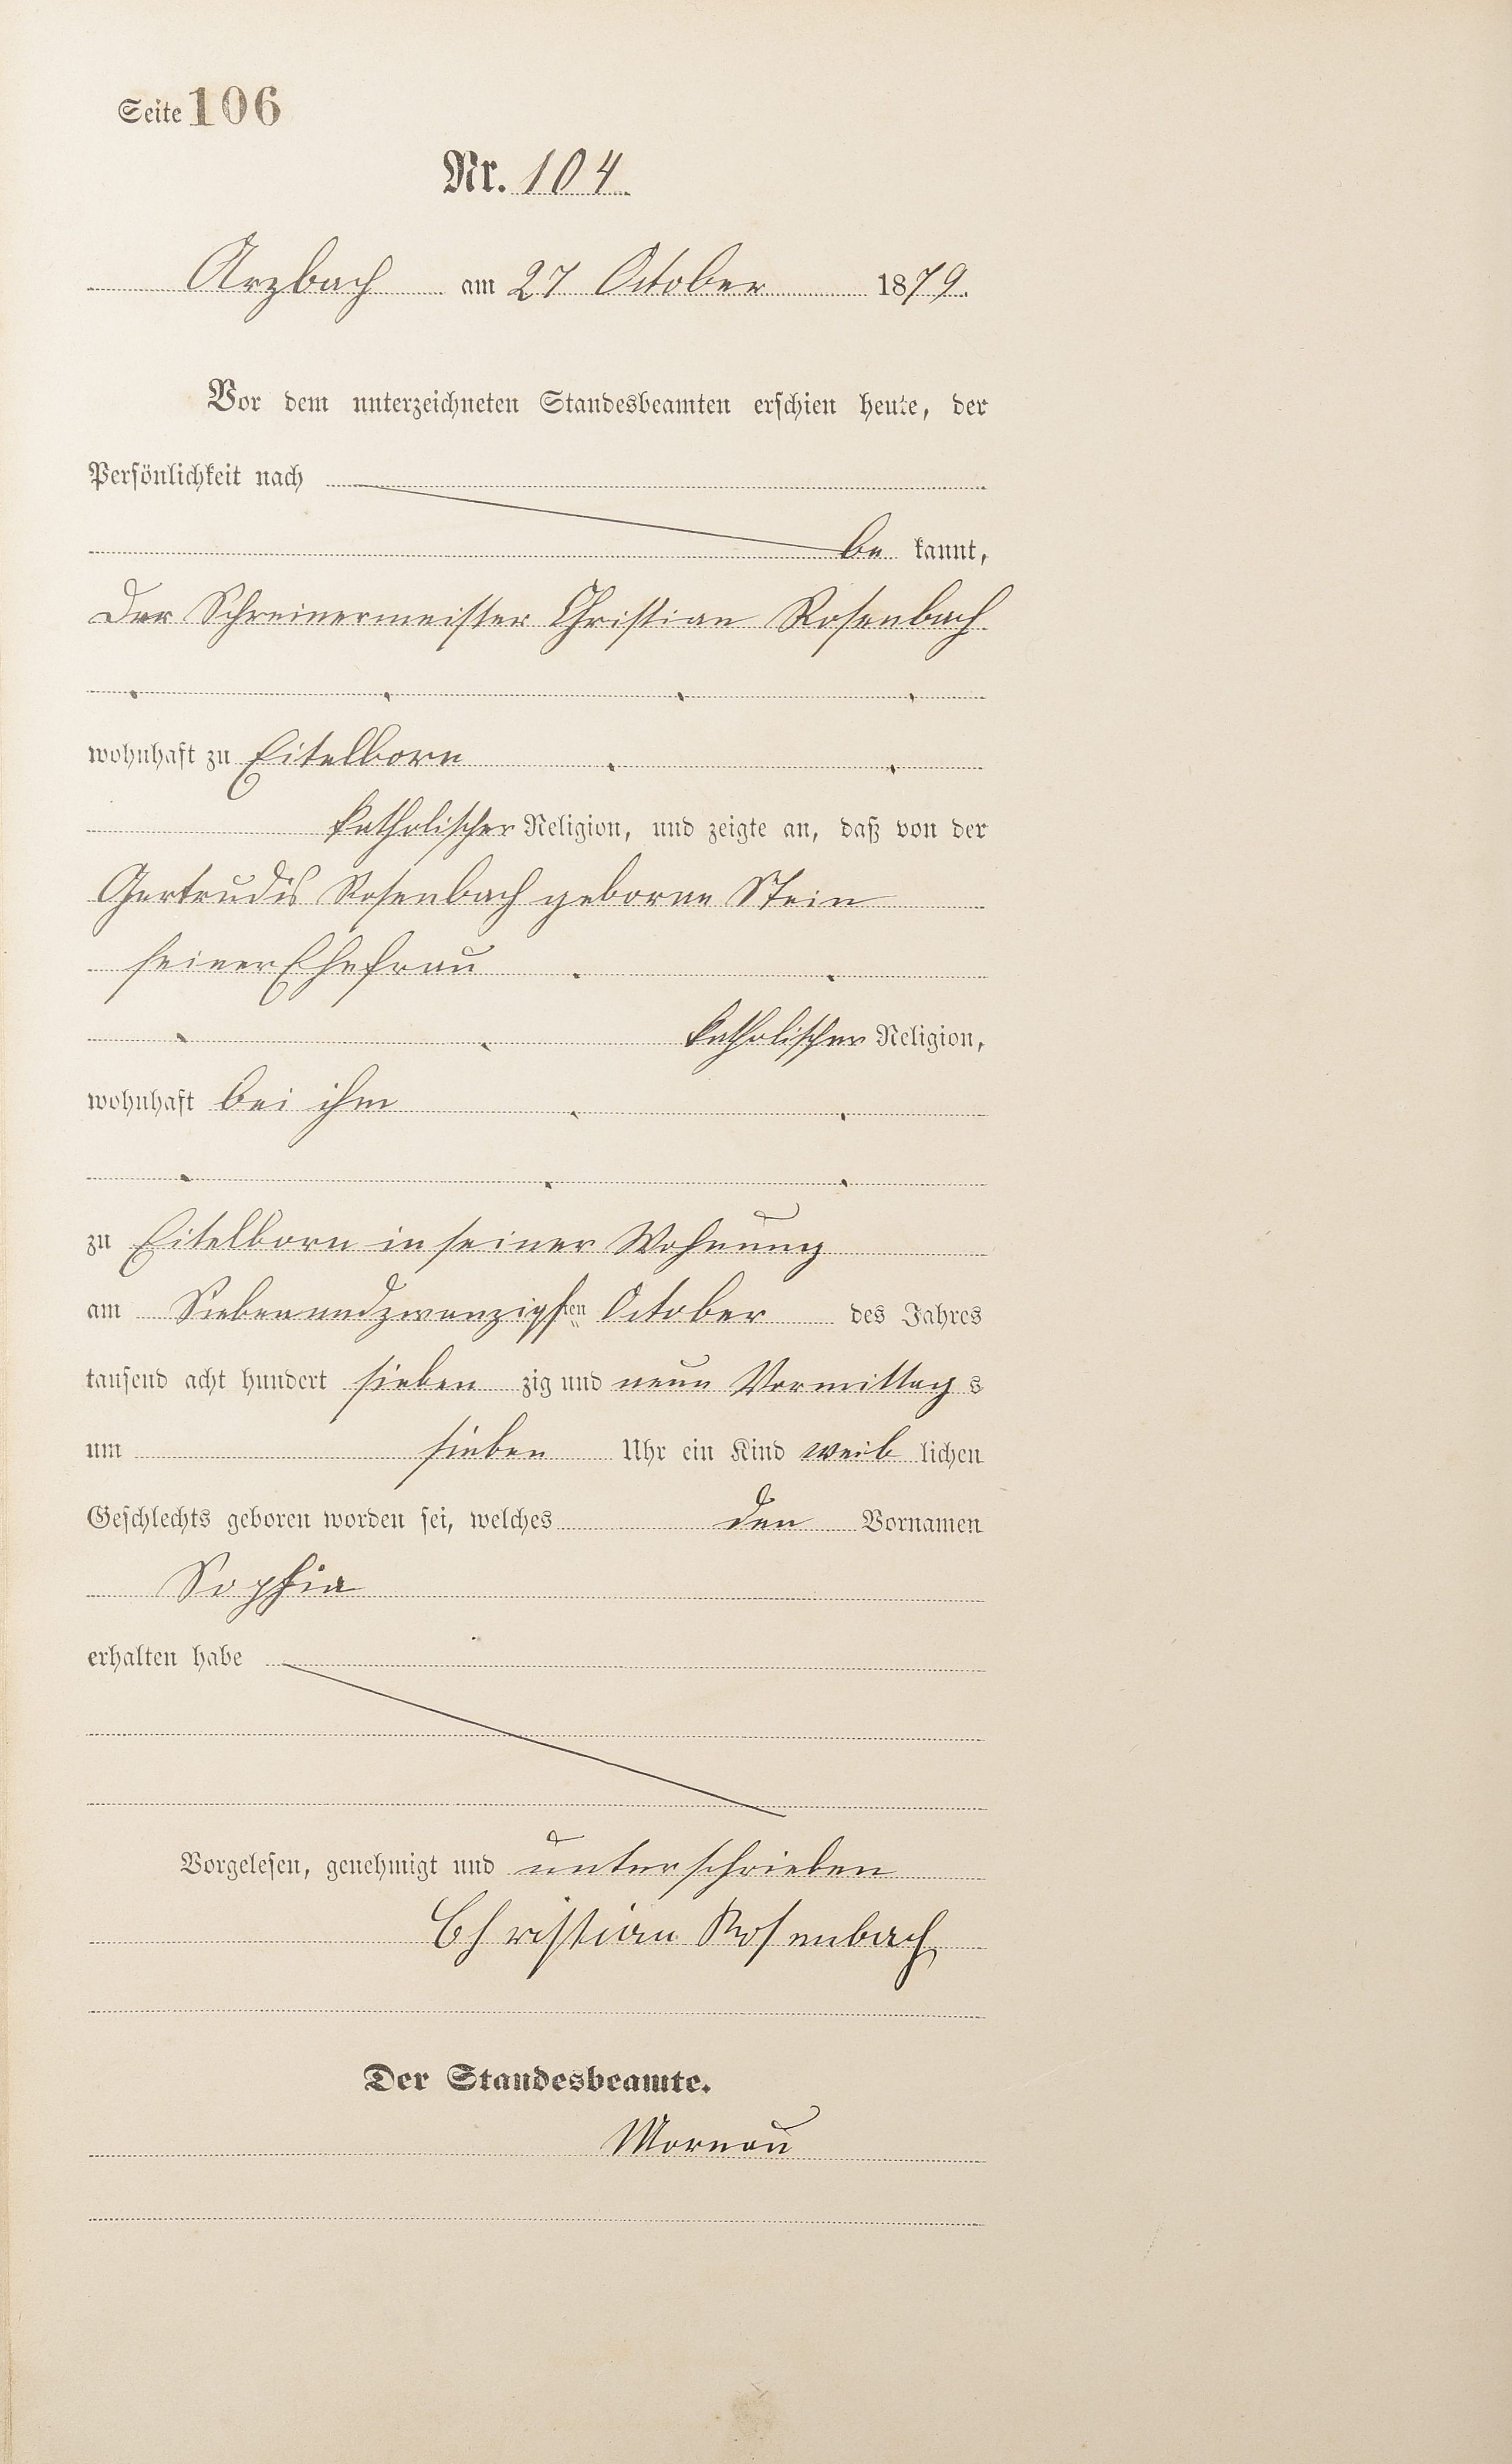 Seite 106
Nr. 104
Arzbach am 27 October 1879.
Vor dem unterzeichneten Standesbeamten erschien heute, der
Persönlichkeit nach
be kannt,
der Schreinermeister Christian Rosenbach
wohnhaft zu Eitelborn
katholischer Religion, und zeigte an, daß von der
Gertrudis Rosenbach geborne Stein
seiner Ehefrau
katholischer Religion,
wohnhaft bei ihm
zu Eitelborn in seiner Wohnung
am Siebenundzwanzigsten October des Jahres
tausend acht hundert sieben zig und neun Vormittag s
um sieben Uhr ein Kind weib lichen
Geschlechts geboren worden sei, welches den Vornamen
Sophia
erhalten habe
Vorgelesen, genehmigt und unterschrieben
Christian Rosenbach
Der Standesbeamte.
Mornau